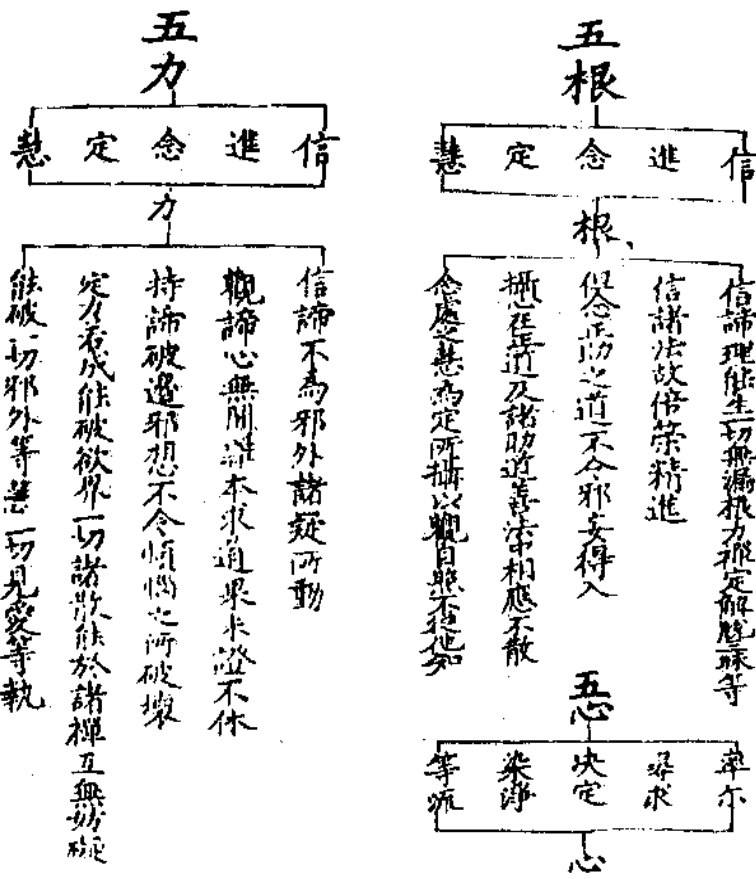 五根
信 進 念 定 慧
根
信諦理能生一切無漏根力禪定解脫三昧等
信諸法故倍策精進
但念正助之道不令邪妄得入
攝心在正道及諸助道善法中相應不散
念處之慧為定所攝以觀自照不從他知
五心
率尔 尋求 決定 染淨 等流
心
五力
信 進 念 定 慧
力
信諦不為邪外諸疑所動
觀諦心無間雜本求道果未證不休
持諦破邊邪想不令煩惱之所破壞
定力若成能破欲界一切諸散能於諸禪互無妨礙
能破一切邪外等慧一切見愛等執